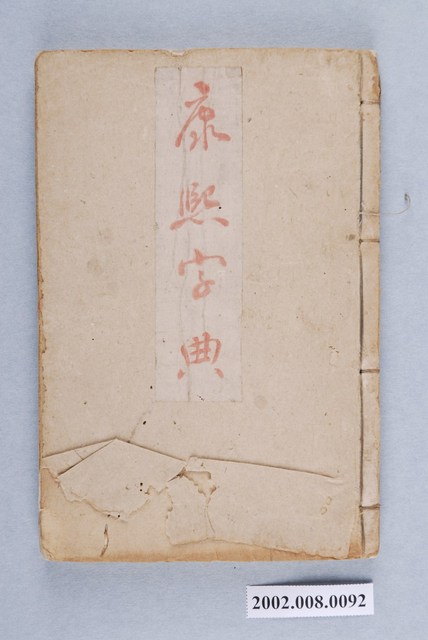 康熙字典
2002.008.0092